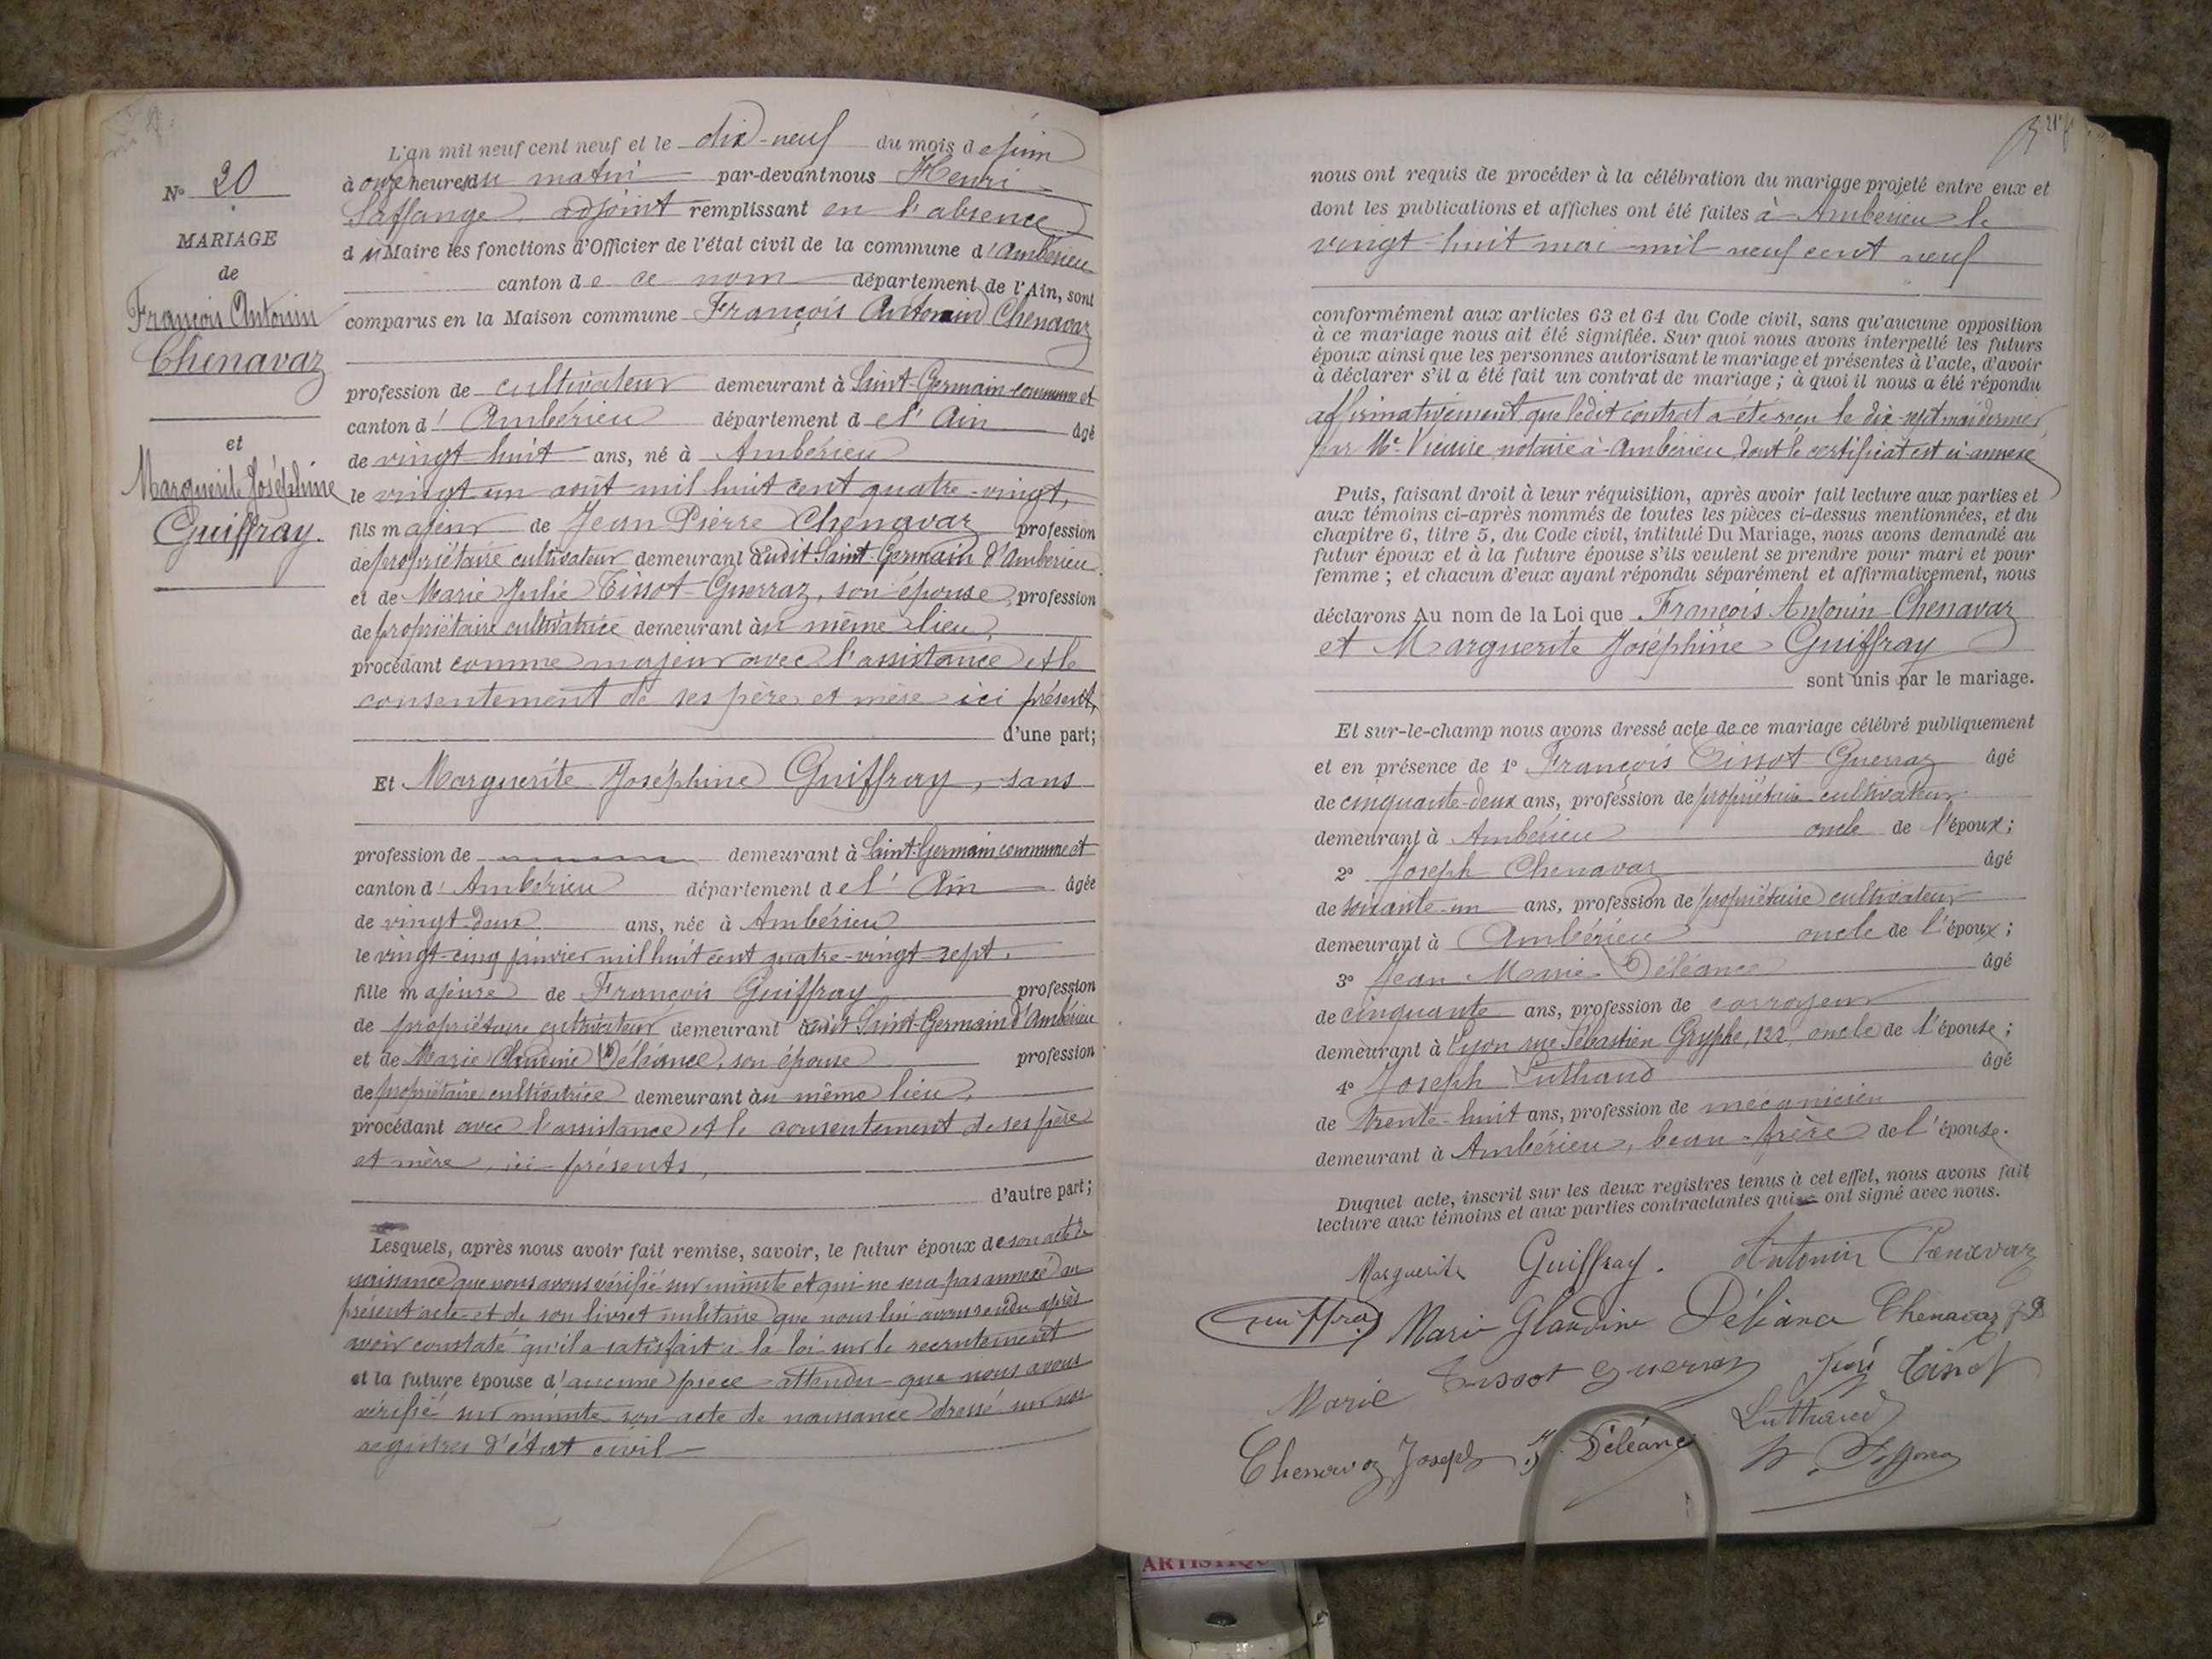 N° 20
MARIAGE
de
François Antonin
Chenavaz
et
Marguerite Joséphine
Guiffray.
L'an mil neuf cent neuf et le dix-neuf du mois de juin
à onze heures du matin par-devant nous Henri
adjoint remplissant en l'absence
du Maire les fonctions d'Officier de l'état civil de la commune d'Ambérieu
canton de ce nom département de l'Ain, sont
comparus en la Maison commune François Antonin Chenavaz
profession de cultivateur demeurant à Saint-Germain commune et
canton d'Ambérieu département de l'Ain âgé
de vingt huit ans, né à Ambérieu
le vingt-un août mil huit cent quatre-vingt,
fils majeur de Jean Pierre Chenavaz profession
de propriétaire cultivateur demeurant audit Saint-Germain d'Ambérieu
et de Marie Julie Tissot-Guerraz, son épouse, profession
de propriétaire cultivatrice demeurant au même lieu,
procédant comme majeur avec l'assistance et le
consentement de ses père et mère ici présents,
d'une part;
Et Marguerite Joséphine Guiffray, sans
profession de demeurant à Saint-Germain, commune et
canton d'Ambérieu département de l'Ain âgée
de vingt-deux ans, née à Ambérieu
le vingt-cinq janvier mil huit cent quatre-vingt sept,
fille majeure de François Guiffray profession
de propriétaire cultivateur demeurant audit Saint-Germain d'Ambérieu
et de Marie Claudine Déléance, son épouse profession
de propriétaire cultivatrice demeurant au même lieu,
procédant avec l'assistance et le consentement de ses père
et mère, ici présents,
d'autre part;
Lesquels, après nous avoir fait remise, savoir, le futur époux de son acte de
naissance que nous avons vérifié sur minute et qui ne sera pas annexé au
présent acte et de son livret militaire que nous lui avons rendu après
avoir constaté qu'il a satisfait à la loi sur le recrutement
et la future épouse d'aucune pièce attendu que nous avons
vérifié sur minute son acte de naissance dressé sur nos
registres d'état civil
21
nous ont requis de procéder à la célébration du mariage projeté entre eux et
dont les publications et affiches ont été faites à Ambérieu le
vingt-huit mai mil neuf cent neuf
conformément aux articles 63 et 64 du Code civil, sans qu'aucune opposition
à ce mariage nous ait été signifiée. Sur quoi nous avons interpellé les futurs
époux ainsi que les personnes autorisant le mariage et présentes à l'acte, d'avoir
à déclarer s'il a été fait un contrat de mariage; à quoi il nous a été répondu
affirmativement que ledit contrat a été reçu le dix-sept mai dernier
par Me notaire à Ambérieu dont le certificat est ci-annexé
Puis, faisant droit à leur réquisition, après avoir fait lecture aux parties et
aux témoins ci-après nommés de toutes les pièces ci-dessus mentionnées, et du
chapitre 6, titre 5, du Code civil, intitulé Du Mariage, nous avons demandé au
futur époux et à la future épouse s'ils veulent se prendre pour mari et pour
femme; et chacun d'eux ayant répondu séparément et affirmativement, nous
déclarons Au nom de la Loi que François Antonin Chenavaz
et Marguerite Joséphine Guiffray
sont unis par le mariage.
Et sur-le-champ nous avons dressé acte de ce mariage célébré publiquement
et en présence de 1° François Tissot Guerraz âgé
de cinquante-deux ans, profession de propriétaire cultivateur
demeurant à Ambérieu oncle de l'époux;
2° Joseph Chenavaz âgé
de soixante-un ans, profession de propriétaire cultivateur
demeurant à Ambérieu oncle de l'époux;
3° Jean Marie Déléance âgé
de cinquante ans, profession de corroyeur
demeurant à Lyon rue Sébastien Gryphe, 122, oncle de l'épouse;
4° Joseph Luthaud âgé
de trente-huit ans, profession de mécanicien
demeurant à Ambérieu, beau-frère de l'épouse.
Duquel acte, inscrit sur les deux registres tenus à cet effet, nous avons fait
lecture aux témoins et aux parties contractantes qui ont signé avec nous.
Marguerite Guiffray. Antonin Chenavaz
Guiffray Marie Glaudine Déléance Chenavaz J P
Marie Tissot Guerraz Tissot
Chenavaz Joseph J. M. Déléance Luthaud
ARTISTIQU